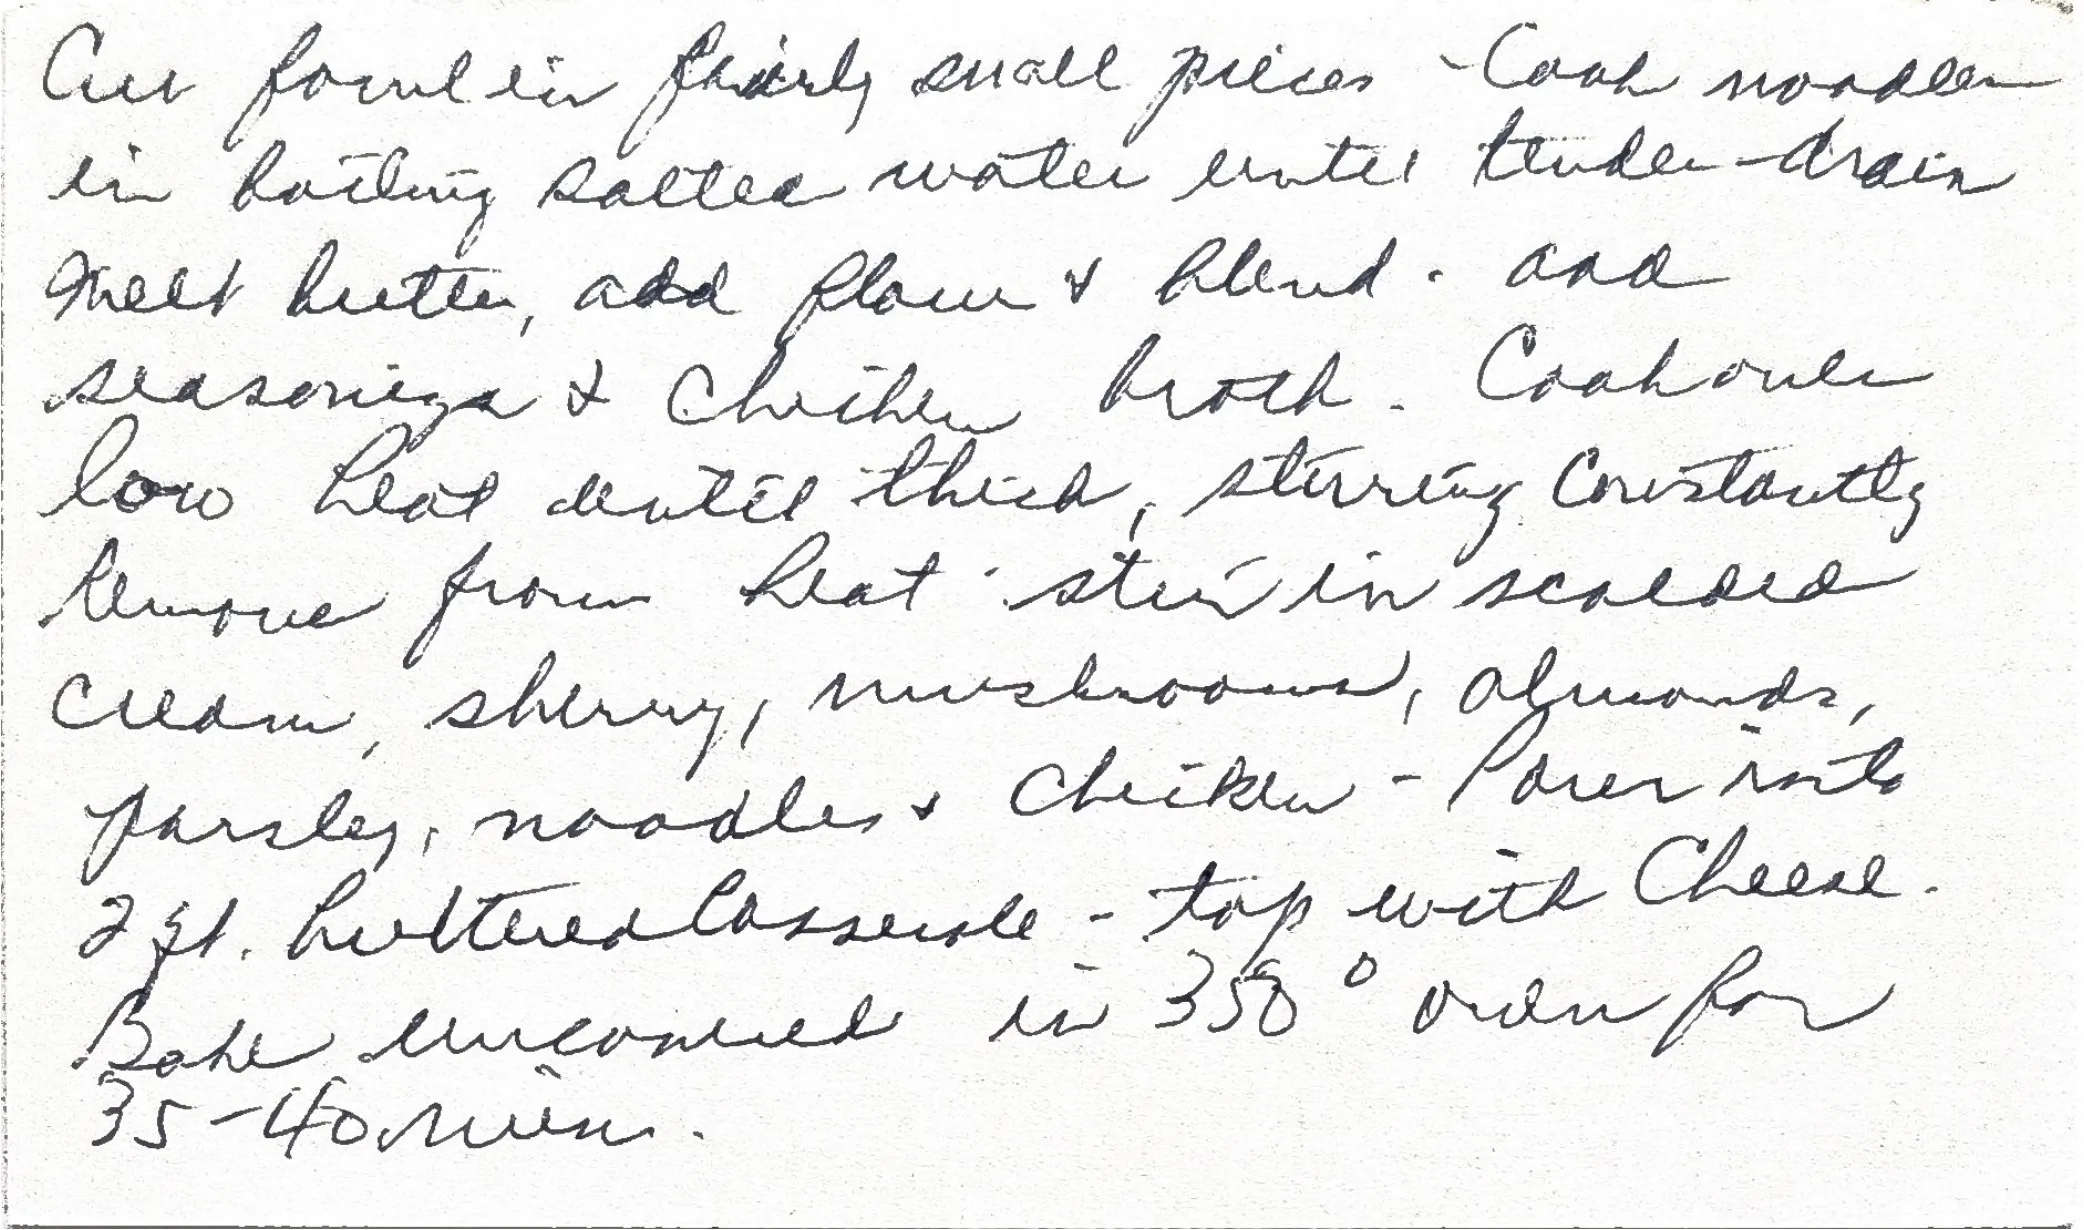 Cut fowl in fairly small pieces - Cook noodles
in boiling salted water until tender - drain
Melt butter, add flour & blend. add
seasonings & Chicken broth. Cook over
low heat until thick, stirring constantly
Remove from heat. stir in scalded
cream, sherry, mushrooms, almonds,
parsley, noodles & Chicken - Pour into
2 qt. buttered Casserole - top with Cheese.
Bake uncovered in 350° oven for
35-40 min.